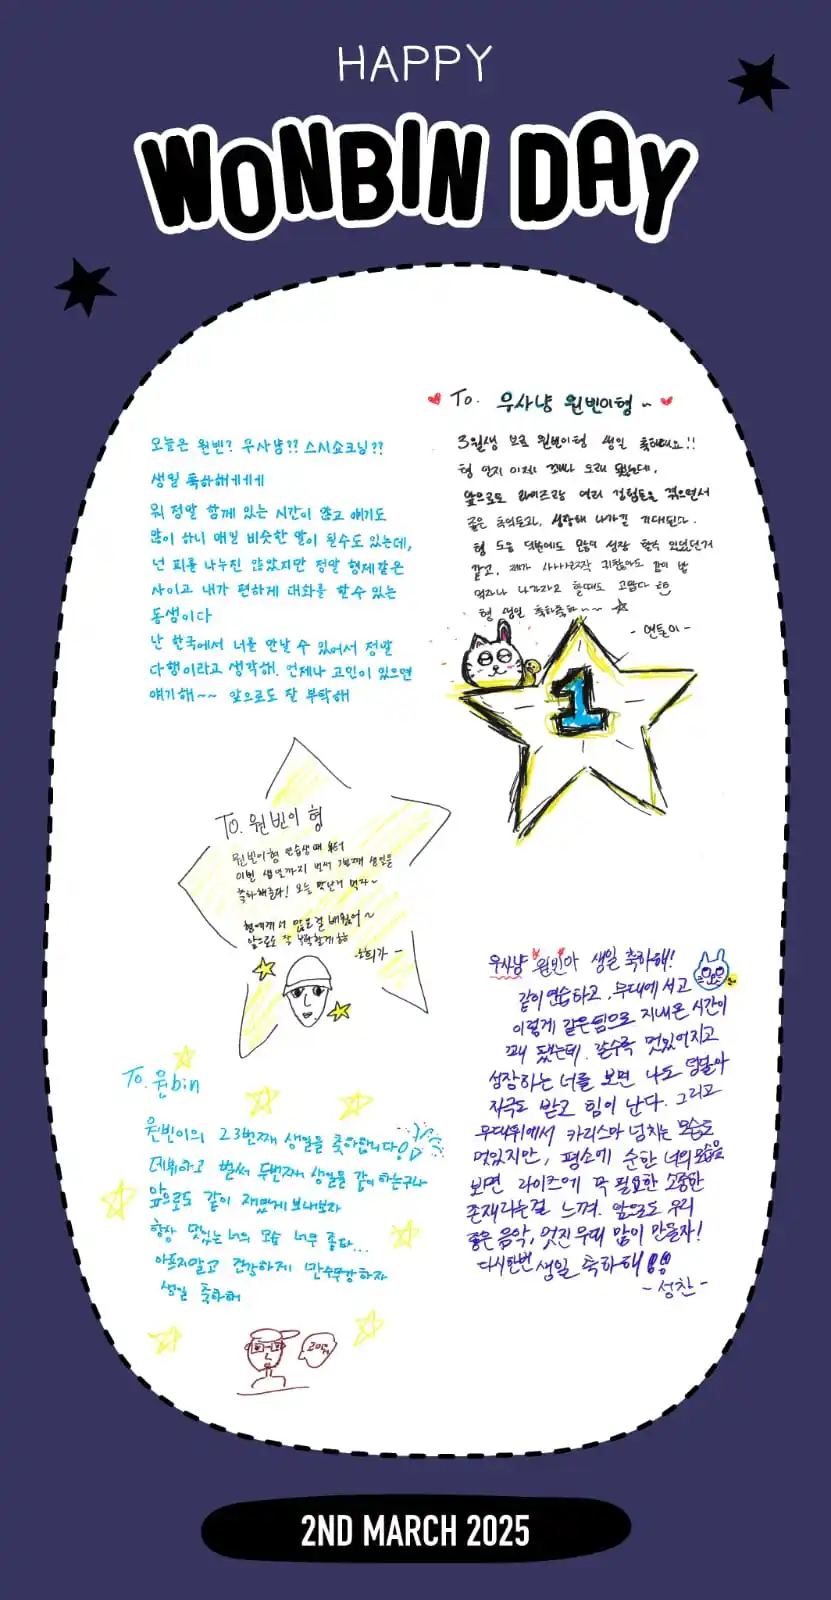 HAPPY
WONBIN DAY
오늘은 원빈? 무사냥?? 스시쇼크닝??
생일 축하해에에에
뭐 정말 함께 있는 시간이 많고 얘기도
많이 하니 매일 비슷한 말이 될수도 있는데,
넌 피를 나누진 않았지만 정말 형제같은
사이고 내가 편하게 대화를 할수 있는
동생이다
난 한국에서 너를 만날 수 있어서 정말
다행이라고 생각해. 언제나 고민이 있으면
얘기해~~ 앞으로도 잘 부탁해
To. 무사냥 원빈이형 ~
3월생 브로 원빈이형 생일 축하해요!!
형 만지 이제 꽤나 오래 됐는데,
앞으로도 라이즈랑 여러 경험들을 겪으면서
좋은 추억들과, 성장해 나가길 기대된다.
형 도움 덕분에도 많이 성장 할수 있었던거
같고, 제가 귀찮아도 같이 밥
먹자나 나가자고 할때도 고맙다
형 생일 축하축하~~~
- 앤톤이 -
1
To. 원빈이 형
원빈이형 연습생때 부터
이번 생일까지 벌써 번째 생일을
축하해준다! 오늘 맛난거 먹자~
형에게서 많은걸 배웠어~
앞으로도 잘 부탁할게
-소희가-
무사냥 원빈아 생일 축하해!
같이 연습하고, 무대에 서고
이렇게 같은팀으로 지내온 시간이
꽤 됐는데, 갈수록 멋있어지고
성장하는 너를 보면 나도 덩달아
자극도 받고 힘이 난다. 그리고
무대위에서 카리스마 넘치는 모습도
멋있지만, 평소에 순한 너의 모습을
보면 라이즈에 꼭 필요한 소중한
존재라는걸 느껴. 앞으로도 우리
좋은 음악, 멋진 무대 많이 만들자!
다시한번 생일 축하해!!
- 성찬 -
To. 원bin
원빈이의 23번째 생일을 축하합니다!
데뷔하고 벌써 두번째 생일을 같이 하는구나
앞으로도 같이 재밌게 보내보자
항상 멋있는 너의 모습 너무 좋다...
아프지말고 건강하게 만수무강하자
생일 축하해
2ND MARCH 2025